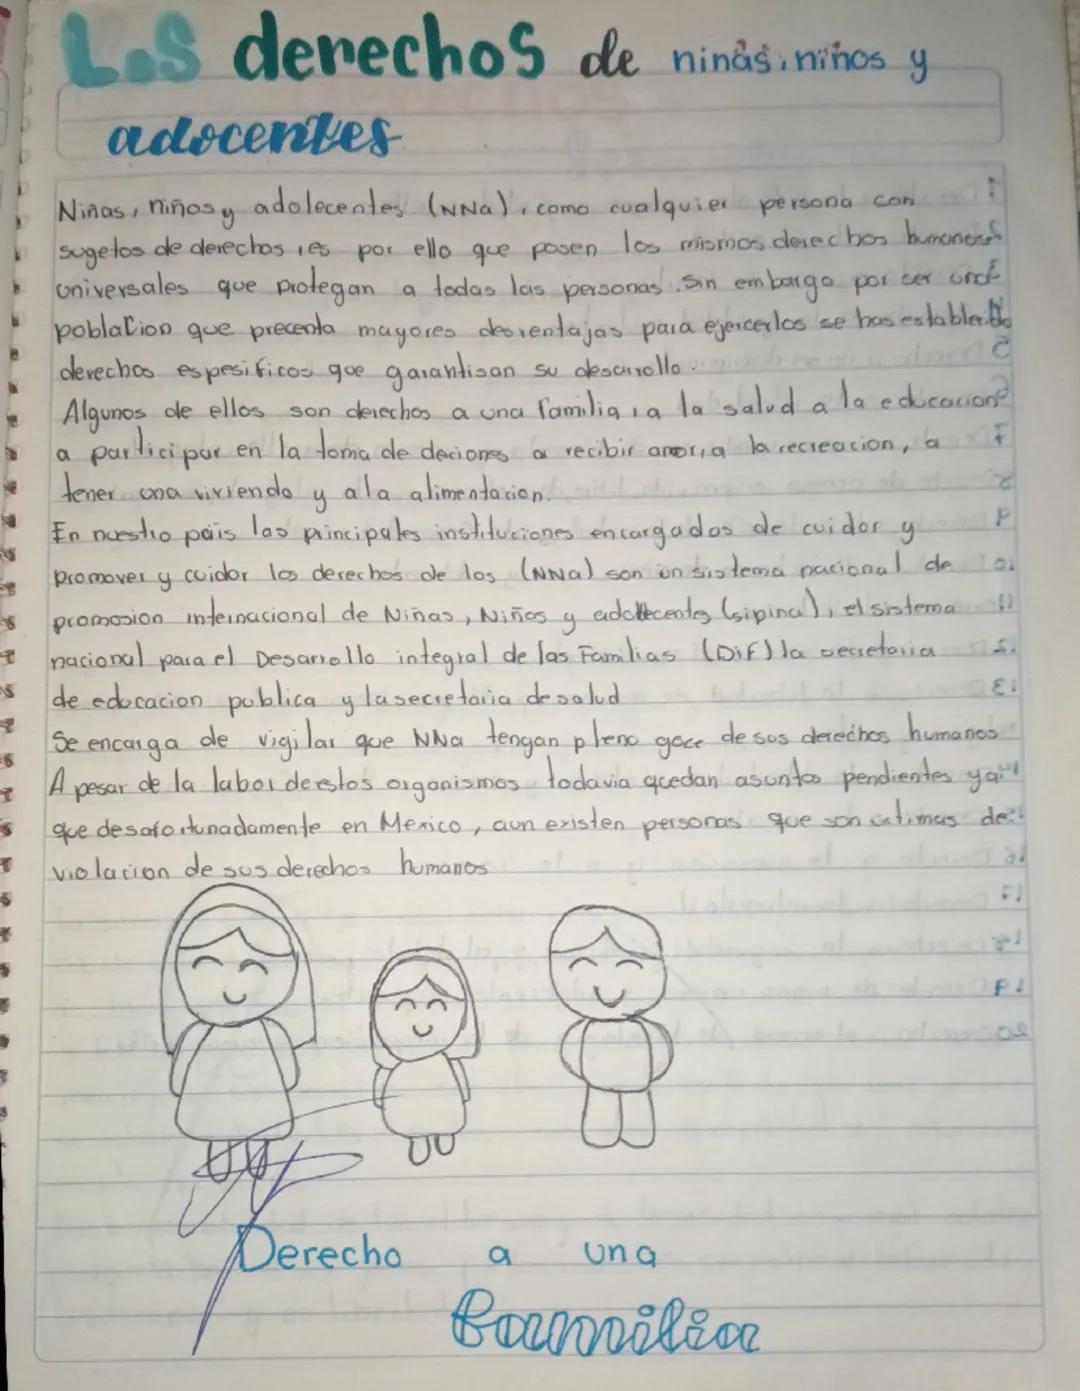 Los derechos de niñas, niños y
adocentes
Niñas, niños y adolecentes (NNa), como cualquier persona con
sugetos de derechos, es por ello que posen los mismos derechos humanos
universales que protegan a todas las personas. Sin embargo por ser una
poblacion que precenta mayores desventajas para ejercerlos se has establecido
derechos espesificos que garantisan su desarrollo.
Algunos de ellos son derechos a una familia, a la salud a la educacion
a participar en la toma de deciones a recibir amor, a la recreacion, a
tener una vivienda y a la alimentacion.
En nuestro pais las principales instituciones encargadas de cuidar y
promover y cuidar los derechos de los (NNa) son un sistema nacional de
promosion internacional de Niñas, Niños y adollecentes (sipina), el sistema
nacional para el Desarrollo integral de las Familias (Dif) la secretaria
de educacion publica y la secretaria de salud
Se encarga de vigilar que NNa tengan pleno goce de sus derechos humanos
A pesar de la labor de estos organismos todavia quedan asuntos pendientes ya
que desafortunadamente en Mexico, aun existen personas que son victimas de
violacion de sus derechos humanos
Derecho a una
familia